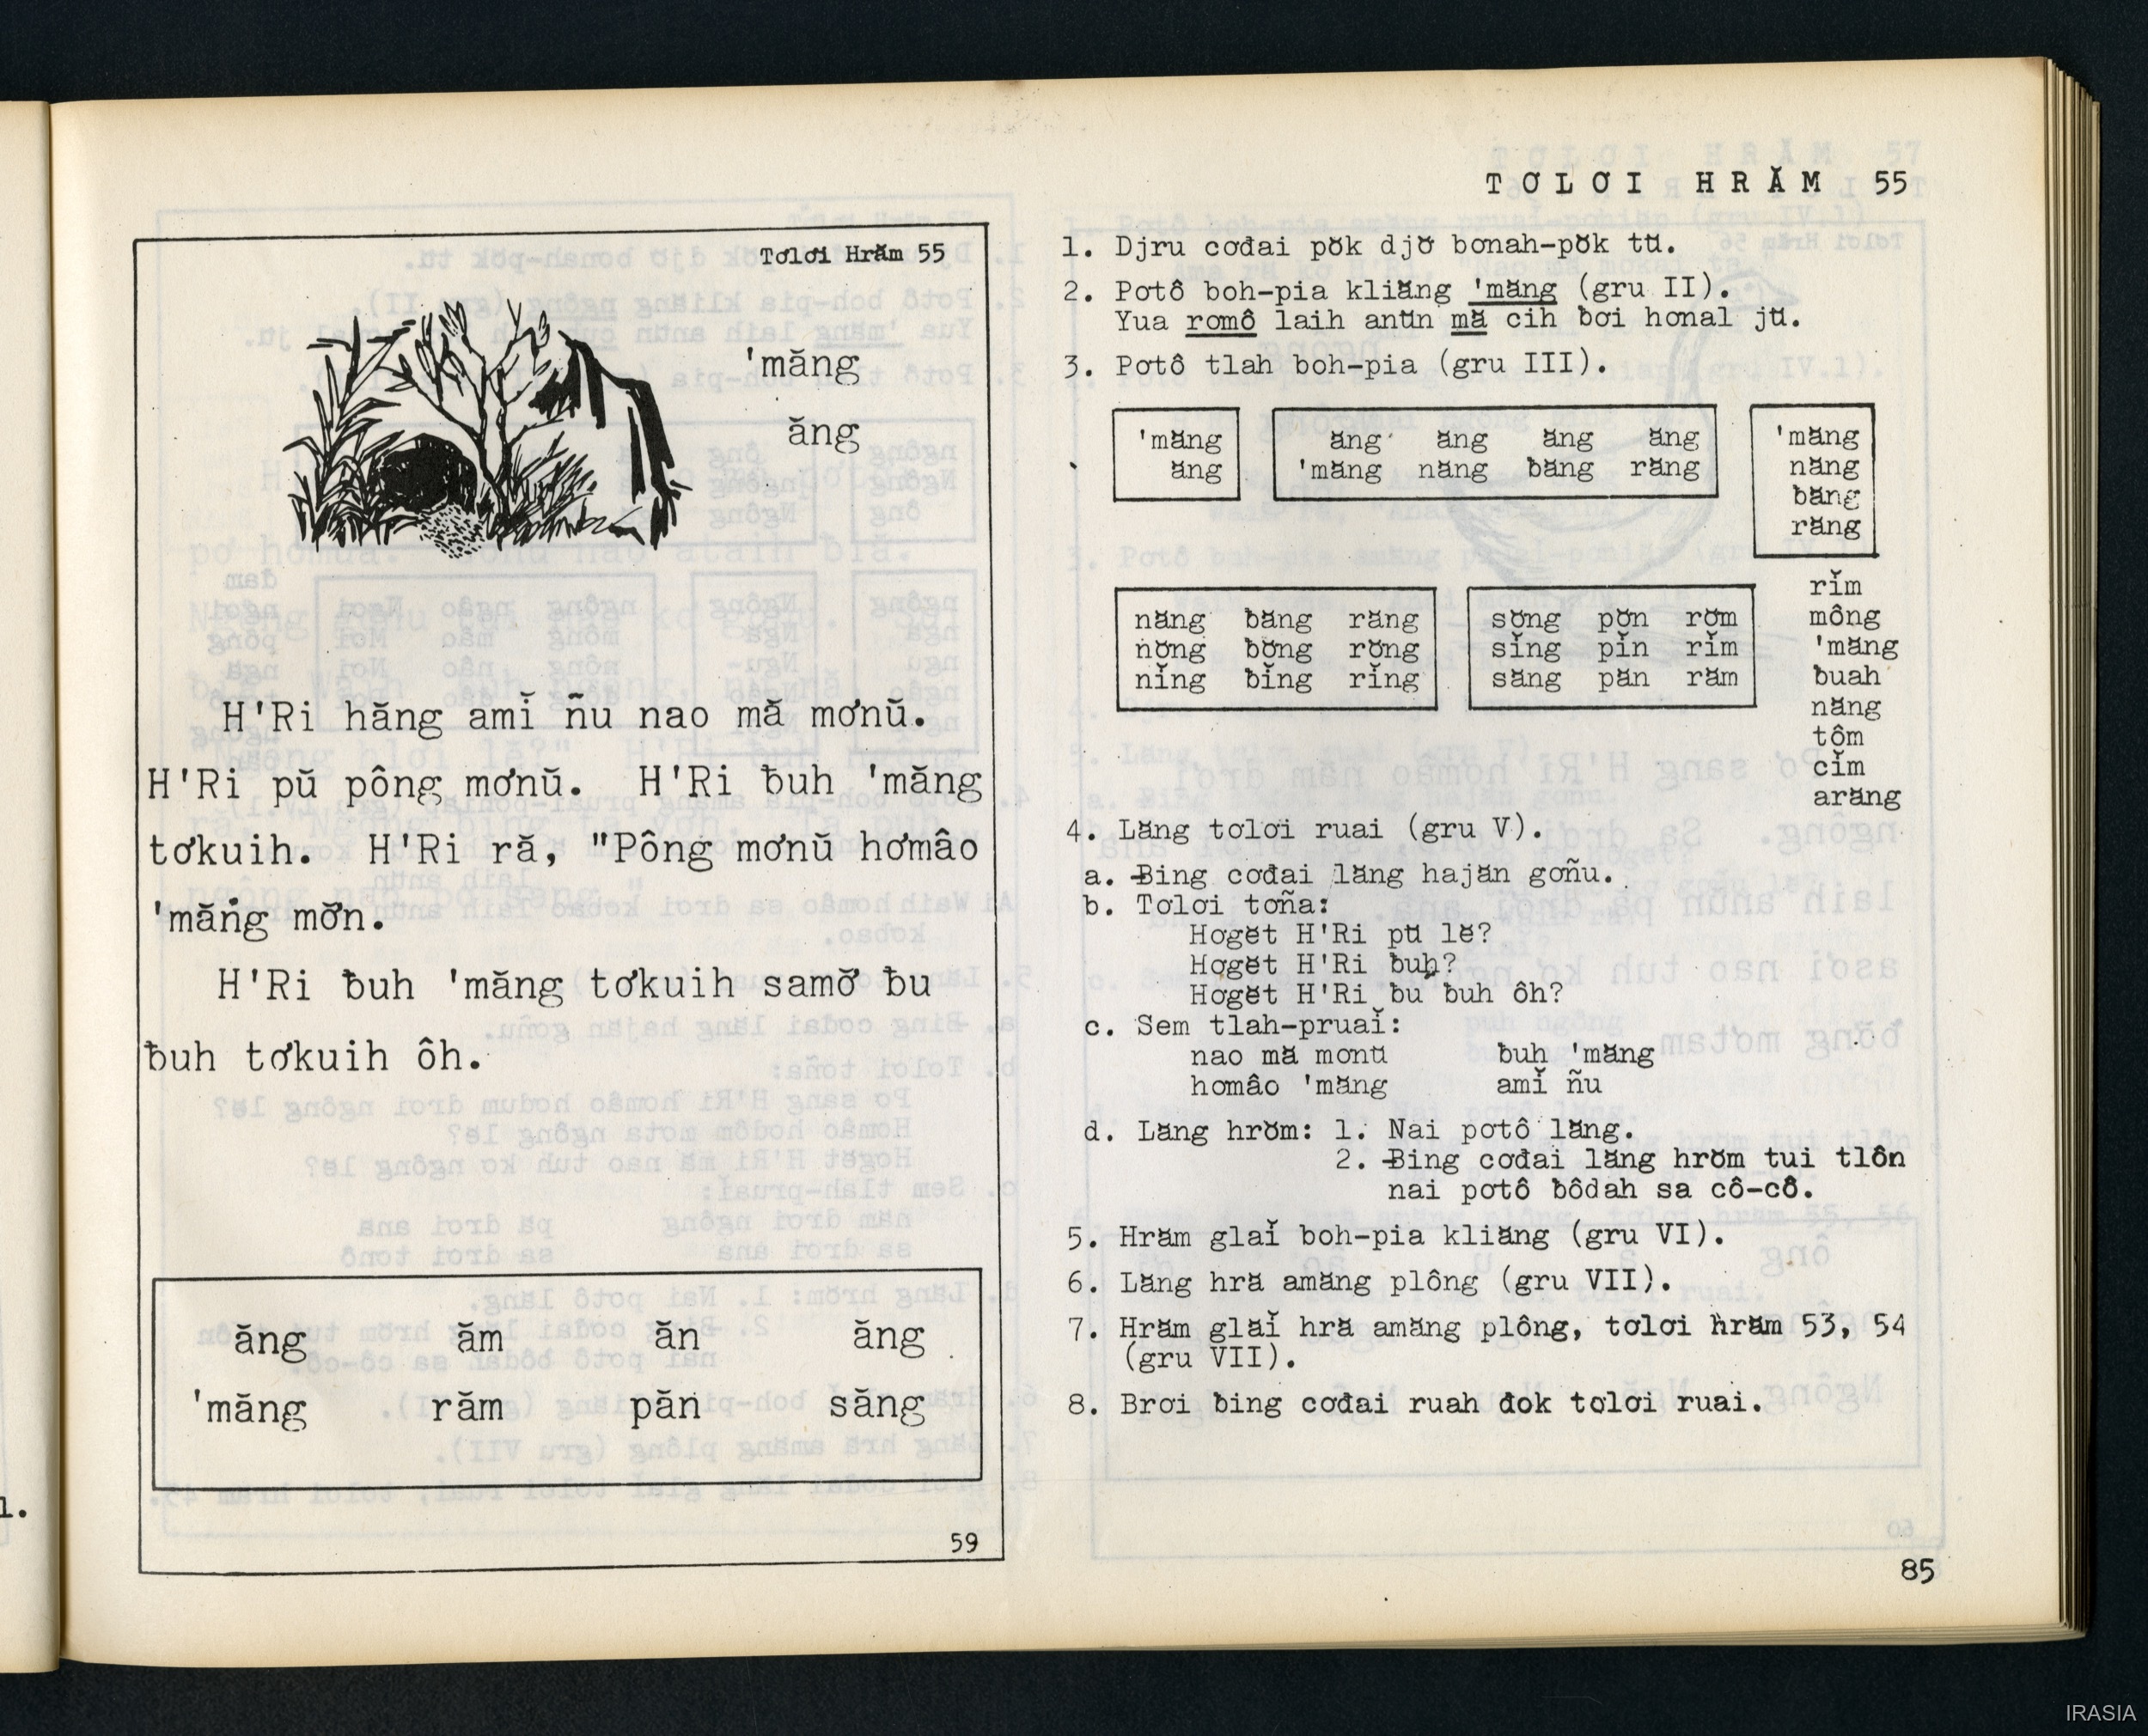 Tơlơi Hrăm 55
'măng
ăng
H'Ri hăng amĭ ñu nao mă mơnŭ.
H'Ri pŭ pông mơnŭ. H'Ri ƀuh 'măng
tơkuih. H'Ri ră, "Pông mơnŭ hơmâo
'măng mơ̆n.
H'Ri ƀuh 'măng tơkuih samơ̆ ƀu
ƀuh tơkuih ôh.
ăng ăm ăn ăng
'măng răm păn săng
59
TƠLƠI HRĂM 55
1. Djru cơđai pŏk djơ̆ bơnah-pŏk tŭ.
2. Pơtô boh-pia kliăng 'măng (gru II).
Yua rơmô laih anŭn mă cih ƀơi hơnal jŭ.
3. Pơtô tlah boh-pia (gru III).
'măng
ăng
ăng ăng ăng ăng
'măng năng ƀăng răng
'măng
năng
ƀăng
răng
năng ƀăng răng
nŏng ƀŏng rŏng
nĭng ƀĭng rĭng
sơ̆ng pơ̆n rơ̆m
sĭng pĭn rĭm
săng păn răm
rĭm
mông
'măng
ƀuah
năng
tôm
cĭm
arăng
4. Lăng tơlơi ruai (gru V).
a. Ƀing cơđai lăng hajăn gơñu.
b. Tơlơi tơña:
Hơgĕt H'Ri pŭ lĕ?
Hơgĕt H'Ri ƀuh?
Hơgĕt H'Ri ƀu ƀuh ôh?
c. Sem tlah-pruaĭ:
nao mă mơnŭ ƀuh 'măng
hơmâo 'măng amĭ ñu
d. Lăng hrŏm: 1. Nai pơtô lăng.
2. Ƀing cơđai lăng hrŏm tui tlôn
nai pơtô ƀôdah sa cô-cô.
5. Hrăm glaĭ boh-pia kliăng (gru VI).
6. Lăng hră amăng plông (gru VII).
7. Hrăm glaĭ hră amăng plông, tơlơi hrăm 53, 54
(gru VII).
8. Brơi ƀing cơđai ruah đok tơlơi ruai.
85
1.
IRASIA